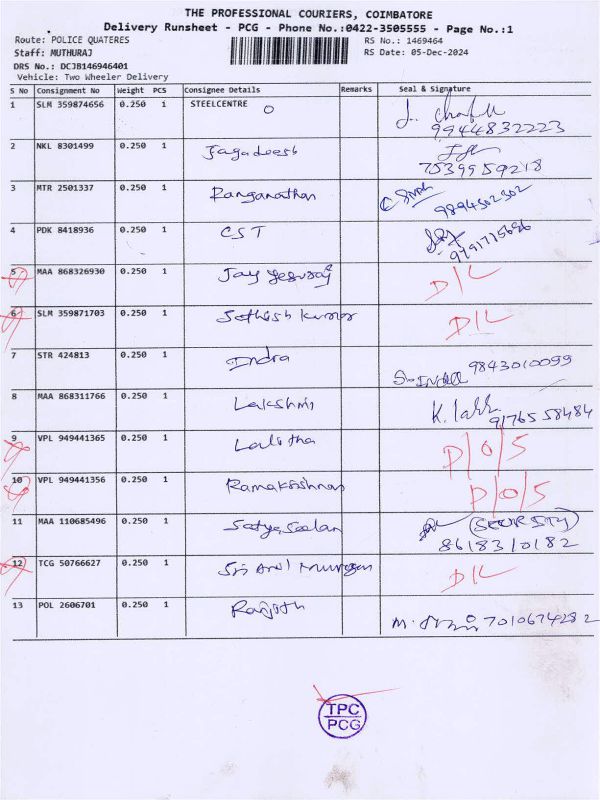 THE PROFESSIONAL COURIERS, COIMBATORE
Delivery Runsheet - PCG - Phone No.:0422-3505555 - Page No.:1
Route: POLICE QUATERES RS No.: 1469464
Staff: MUTHURAJ RS Date: 05-Dec-2024
DRS No.: DCJB146946401
Vehicle: Two Wheeler Delivery
S No Consignment No Weight PCS Consignee Details Remarks Seal & Signature
1 SLM 359874656 0.250 1 STEELCENTRE
9944832223
2 NKL 8301499 0.250 1 Jagadeesh
7539959218
3 MTR 2501337 0.250 1 Ranganathan 9894302302
4 PDK 8418936 0.250 1 CST
9791775686
5 MAA 868326930 0.250 1 Jay D/L
6 SLM 359871703 0.250 1 Sathish Kumar D/L
7 STR 424813 0.250 1 Indra 9843010099
8 MAA 868311766 0.250 1 Lakshmi
9176558484
9 VPL 949441365 0.250 1 Lalitha D/O/S
10 VPL 949441356 0.250 1 Ramakrishnan D/O/S
11 MAA 110685496 0.250 1 Satya Seelan
8618310182
12 TCG 50766627 0.250 1 Sri Arul Murugan D/L
13 POL 2606701 0.250 1 Ranjith 7010674282
TPC
PCG